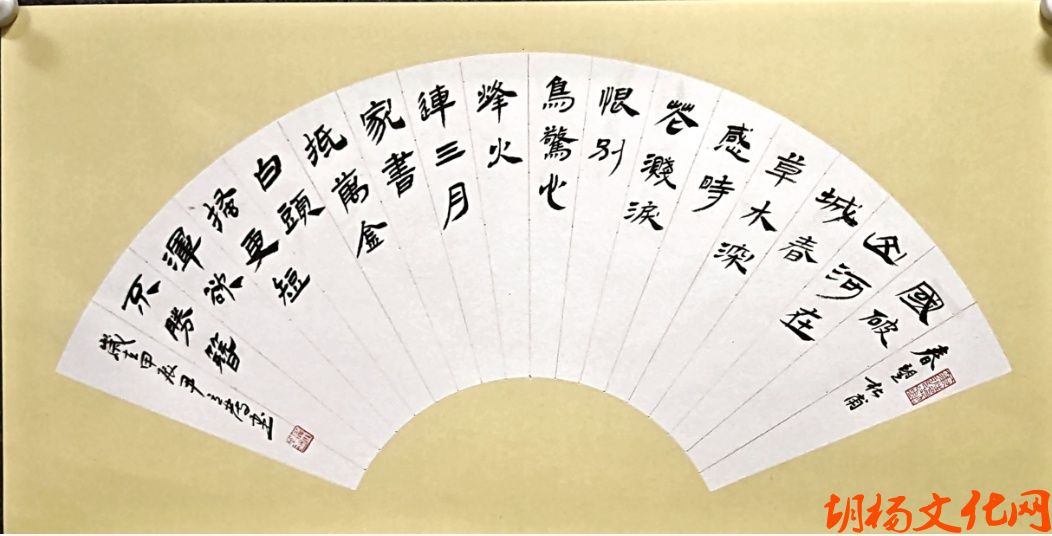 春望 杜甫
國破
山河在
城春
草木深
感時
花濺淚
恨別
鳥驚心
烽火
連三月
家書
抵萬金
白頭
搔更短
渾欲
不勝簪
歲在甲辰尹
胡杨文化网